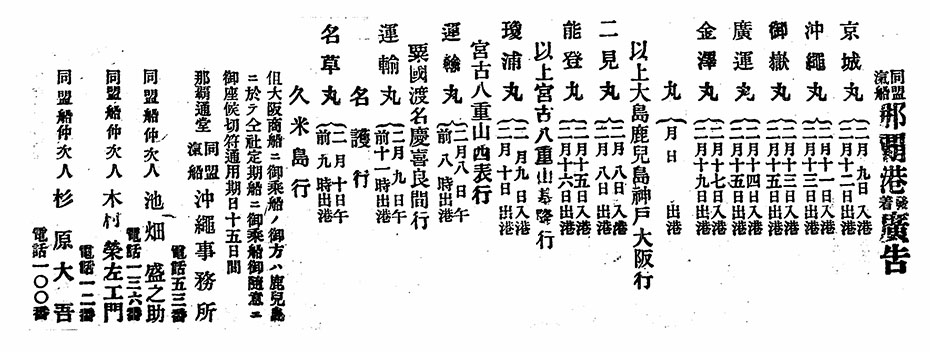 同盟滊船那覇港発着廣告
京城丸{二月九日入港 二月十二日出港
沖繩丸{二月十一日入港 二月十三日出港
御嶽丸{二月十三日入港 二月十四日出港
廣運丸{二月十四日入港 二月十五日出港
金澤丸{二月十七日入港 二月十九日出港
丸{月日 出港
以上大島鹿兒島神戸大阪行
二見丸{二月八日入港 二月八日出港
能登丸{二月十五日入港 二月十六日出港
以上宮古八重山基隆行
瓊浦丸{二月九日入港 二月十日出港
宮古八重山西表行
運輸丸{二月八日午 前 時出港
粟國渡名慶喜良間行
運輸丸{二月九日午 前十一時出港
名護行
名草丸{二月十日午 前九時出港
久米島行
但大阪商船ニ御乗船ノ御方ハ鹿兒島
ニ於テ仝社定期船ニ御乗船御随意ニ
御座候切符通用期日十五日間
那覇通堂 同盟滊船沖繩事務所
電話五三番
同盟船仲次人 池畑盛之助
電話一三六番
同盟船仲次人 木村榮左エ門
電話一二番
同盟船仲次人 杉原大吾
電話一〇〇番